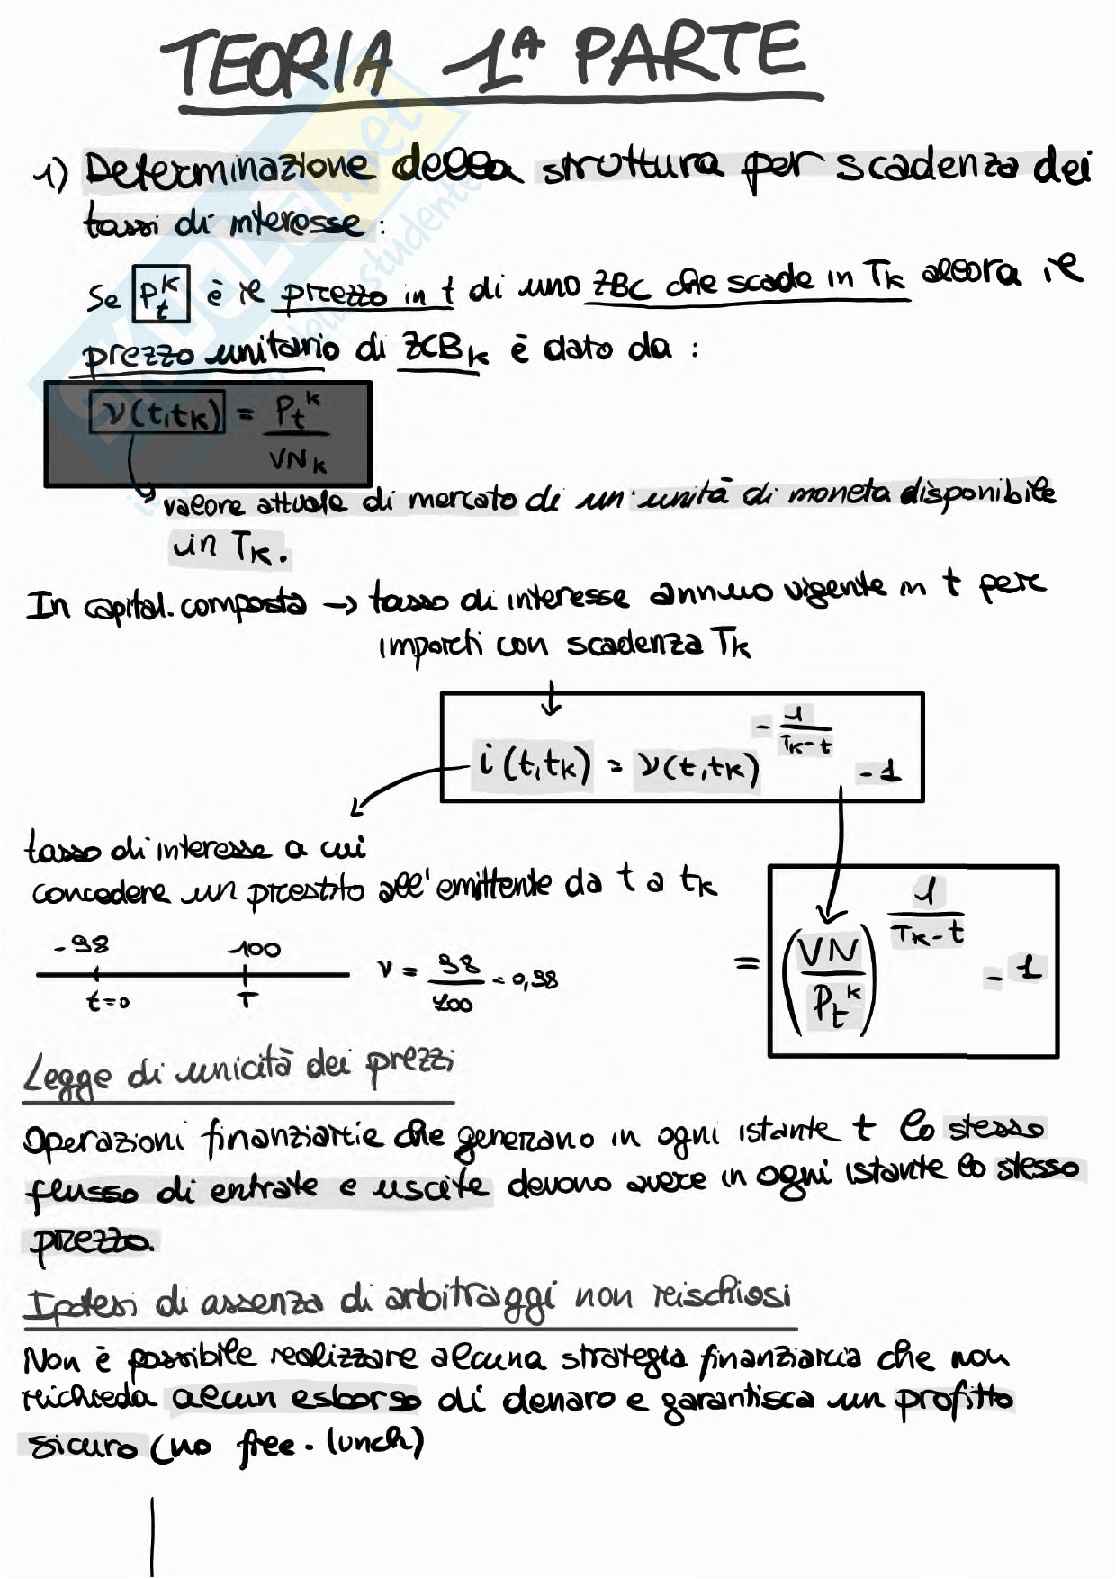 TEORIA 1ª PARTE
1) Determinazione della struttura per scadenza dei
tassi di interesse:
Se P_t^k è il prezzo in t di uno ZBC che scade in T_k allora il
prezzo unitario di ZCB_k è dato da:
ν(t,t_k) = P_t^k / VN_k
valore attuale di mercato di un unità di moneta disponibile
in T_k.
In capital. composta → tasso di interesse annuo vigente in t per
importi con scadenza T_k
i(t,t_k) = ν(t,t_k)^(-1/(T_k-t)) - 1
tasso di interesse a cui
concedere un prestito all'emittente da t a t_k
= (VN / P_t^k)^(1/(T_k-t)) - 1
-98 100 ν = 98/100 = 0,98
t=0 T
Legge di unicità dei prezzi
Operazioni finanziarie che generano in ogni istante t lo stesso
flusso di entrate e uscite devono avere in ogni istante lo stesso
prezzo.
Ipotesi di assenza di arbitraggi non rischiosi
Non è possibile realizzare alcuna strategia finanziaria che non
richieda alcun esborso di denaro e garantisca un profitto
sicuro (no free-lunch)